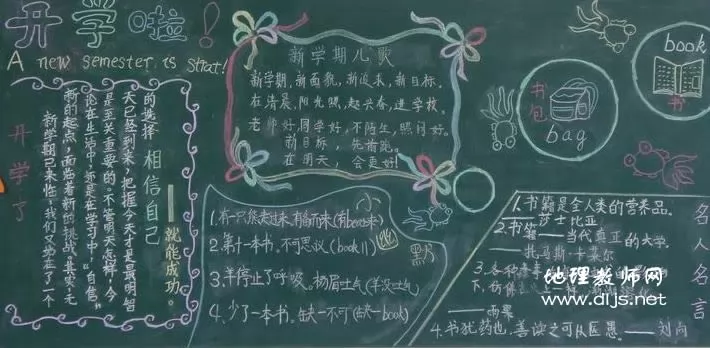 开学啦!
A new semester is strat!
开学了
新学期已来临,我们又站在了一个
新的起点,面临着新的挑战。其实,无
论在生活中,亦是在学习中,"自信"
是至关重要的。不管明天怎样,今
天已经到来,把握今天才是最明智
的选择
相信自己
——就能成功。
新学期儿歌
新学期,新面貌,新起点,新目标。
在清晨,阳光照,起兴春,进学校。
老师好,同学好,不陌生,照问好。
新目标,先肯跑。
在明天,会更好!
1.有一只熊走过来,有备而来(有bear来)
2.第十一本书,不可思议(book11)
3.羊停止了呼吸,扬眉吐气(羊没吐气
4.少了一本书,缺一不可(缺一book)
幽
默
书包
bag
book
书
名人名言
1.书籍是全人类的营养品。
——莎士比亚
2.书籍——当代真正的大学。
——托马斯·卡莱尔
3.各种
下,仿佛
——雨果
4.书犹药也,善读之可以医愚。——刘向
地理教师网
www.dljs.net